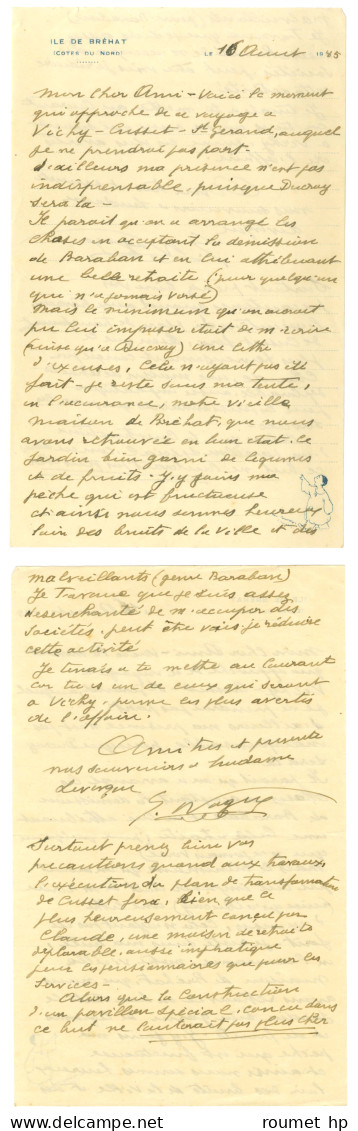 ILE DE BRÉHAT
(COTES DU NORD)
LE 16 Aout 1
Mon Cher Ami - Voici le moment
qui approche de ce voyage a
Vichy - Cusset - St Gerand, auquel
je ne prendrai pas part.
D'ailleurs ma présence n'est pas
indispensable, puisque Ducray
sera là -
Il parait qu'on a arrangé les
choses en acceptant la démission
de Baraban et en lui attribuant
une belle retraite (pour quelqu'un
qui n'a jamais versé)
Mais le minimum qu'on aurait
pu lui imposer était de m'écrire
(ainsi qu'a Ducray) une lettre
d'excuses, Cela n'ayant pas été
fait - je reste sous ma tente,
en l'occurence, notre vieille
maison de Bréhat, que nous
avons retrouvée en bon état. le
jardin bien garni de légumes
et de fruits. J'y fais ma
pêche qui est fructueuse
et ainsi nous sommes heureux
loin des bruits de la ville et des
malveillants (genre Baraban)
Je trouve que je suis assez
désenchanté de m'occuper des
Sociétés. peut être vais-je réduire
cette activité
Je tenais a te mettre au courant
car tu es un de ceux qui seront
a Vichy, parmi les plus avertis
de l'affaire.
Amitiés et présente
nos souvenirs a Madame
Surtout prenez bien vos
précautions quand aux travaux,
l'exécution du plan de transformation
de Cusset fera, bien que le
plus heureusement conçu par
Claude, une maison de retraite
déplorable, aussi
pour les pensionnaires que pour les
services -
Alors que la Construction
d'un pavillon spécial, conçu dans
ce but ne couterait pas plus cher